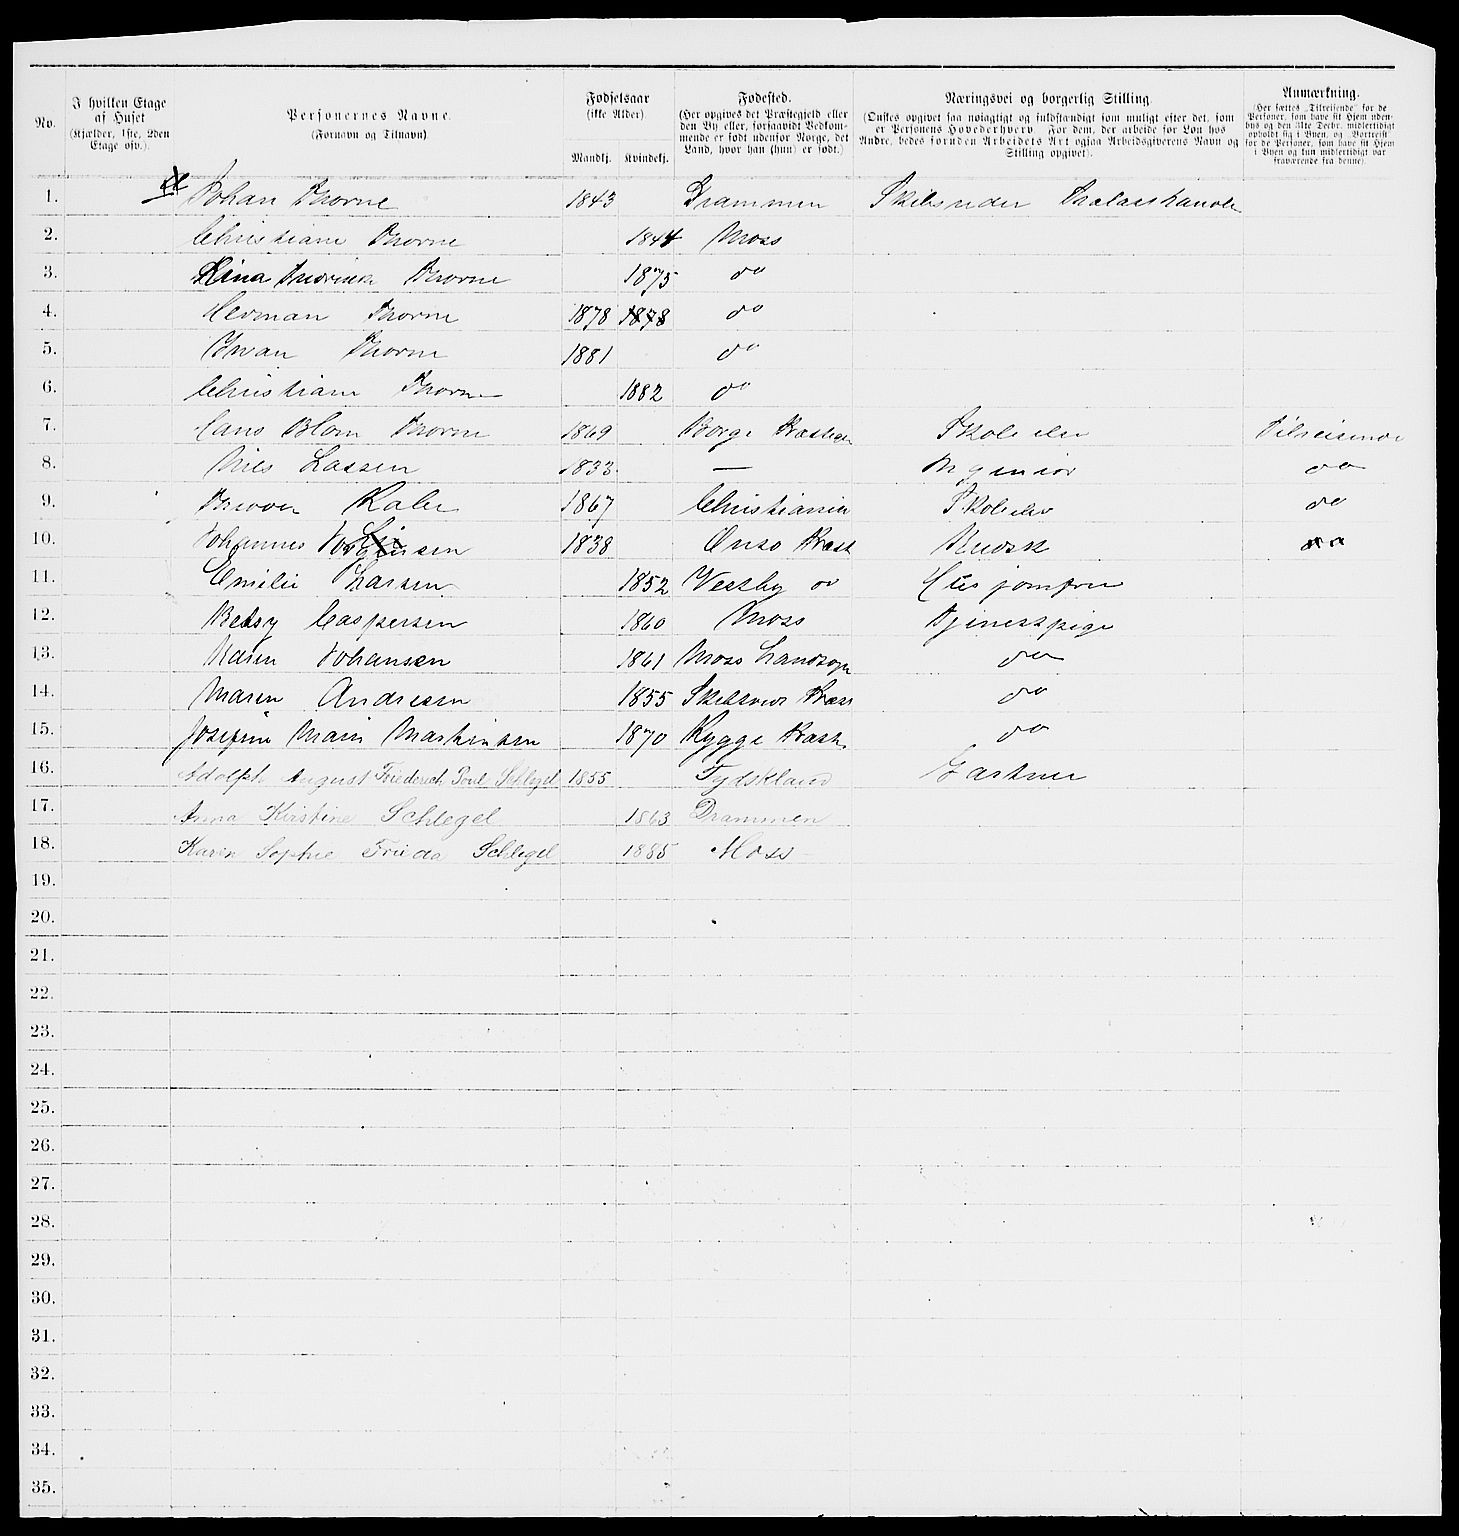 No.
I hvilken Etage af Huset
(Kjælder, 1ste, 2den Etage osv.).
Personernes Navne.
(Fornavn og Tilnavn).
Fødselsaar
(ikke Alder)
Mandkj. Kvindekj.
Fødested.
(Her opgives det Præstegjeld eller den By eller, forsaavidt Vedkommende er født udenfor Norge, det Land, hvor han (hun) er født.)
Næringsvei og borgerlig Stilling.
(Ønskes opgivet saa nøiagtigt og fuldstændigt som muligt efter det, som er Personens Hovederhverv. For dem, der arbeide for Løn hos Andre, bedes foruden Arbeidets Art ogsaa Arbeidsgiverens Navn og Stilling opgivet).
Anmærkning.
(Her sættes „Tilreisende" for de Personer, som have sit Hjem udenbys og den 31te Decbr. midlertidigt opholdt sig i Byen, og „Bortreist" for de Personer, som have sit Hjem i Byen og kun midlertidigt var fraværende fra denne).
1. Johan Thorne 1843 Drammen Skibsreder Trælasthandle
2. Christiane Thorne 1844 Moss
3. Lina Thorine Thorne 1875 do
4. Herman Thorne 1878 1878 do
5. Iwan Thorne 1881 do
6. Christiane Thorne 1882 do
7. Hans Blom Thorne 1869 Borge Præstegj Skoleelev Tilreisende
8. Nils Lassen 1833 — Ingeniør do
9. Kaler 1867 Christiania Skoleelev do
10. Johannes Jørgensen 1838 Onsø Præst Kudsk do
11. Emilie Larsen 1852 Vestby do Husjomfru
12. Betsy Caspersen 1860 Moss Tjenestpige
13. Karen Johansen 1861 Moss Landsogn do
14. Maren Andresen 1855 Skibtvedt Præst do
15. Josefine Marie Martinsen 1870 Rygge Præst do
16. Adolph August Friederich Poul Schlegel 1855 Tydskland Gartner
17. Anna Kirstine Schlegel 1863 Drammen
18. Karen Sophie Frieda Schlegel 1885 Moss
19.
20.
21.
22.
23.
24.
25.
26.
27.
28.
29.
30.
31.
32.
33.
34.
35.